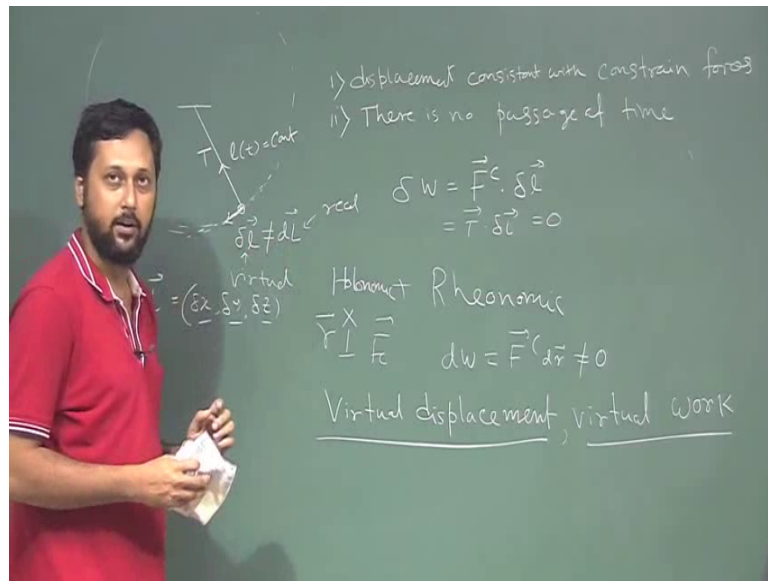 1) displacement consistent with constrain forces
11) There is no passage of time
T l(t)=Cont
δl⃗ ≠ dL⃗ ← real
↑ virtual
= (δx, δy, δz)
δW = F⃗ᶜ · δl⃗
= T⃗ · δl⃗ = 0
Rheonomic
X
r⃗ ⊥ F⃗c
dW = F⃗ᶜ dr⃗ ≠ 0
Virtual displacement, virtual work